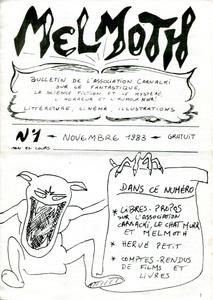 MELMOTH
BULLETIN DE L'ASSOCIATION CARNACKI
SUR LE FANTASTIQUE,
LA SCIENCE FICTION ET LE MYSTÈRE,
L'HORREUR ET L'HUMOUR NOIR!
LITTÉRATURE, CINÉMA, ILLUSTRATIONS
N°1 - NOVEMBRE 1983 - GRATUIT
DANS CE NUMÉRO
* LIBRES-PROPOS
SUR L'ASSOCIATION
CARNACKI, LE CHAT MURR
ET MELMOTH
* HERVÉ PETIT
* COMPTES-RENDUS
DE FILMS ET
LIVRES